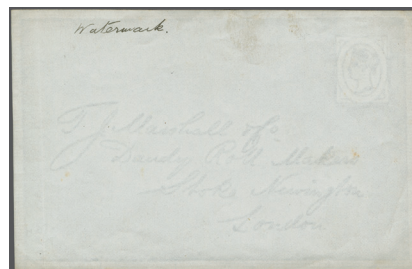 Watermark.
T. J. Marshall &
Dandy Roll Makers
Stoke Newington
London